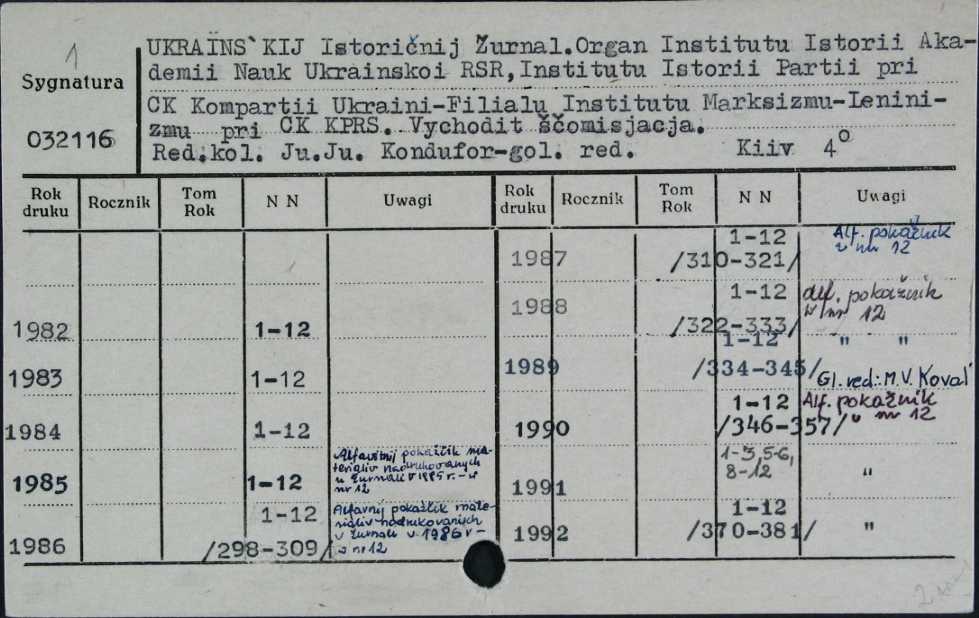 1
Sygnatura
032116
UKRAÏNS`KIJ Istoričnij Žurnal.Organ Institutu Istorii Aka-
demii Nauk Ukrainskoi RSR,Institutu Istorii Partii pri
CK Kompartii Ukraini-Filialu Institutu Marksizmu-Lenini-
zmu pri CK KPRS. Vychodit ščomisjacja.
Red.kol. Ju.Ju. Kondufor-gol. red. Kiiv 4°
Rok druku Rocznik Tom Rok N N Uwagi
1982 1-12
1983 1-12
1984 1-12
1985 1-12 Alfavitnij pokažčik ma-
terialiv nadrukovanych
u žurnali v 1985 r. - v
nr 12
1986 1-12 /298-309/ Alfavnij pokažčik mate-
rialiv nadrukovanych
v žurnali v 1986 r -
v nr 12
Rok druku Rocznik Tom Rok N N Uwagi
1987 1-12 /310-321/ Alf. pokažnik
v nr 12
1988 1-12 /322-333/ Alf. pokažnik
w nr 12
1989 1-12 /334-345/ " "
Gl. red.: M.V. Koval'
1990 1-12 /346-357/ Alf. pokažnik
v nr 12
1991 1-3,5-6,
8-12 "
1992 1-12 /370-381/ "